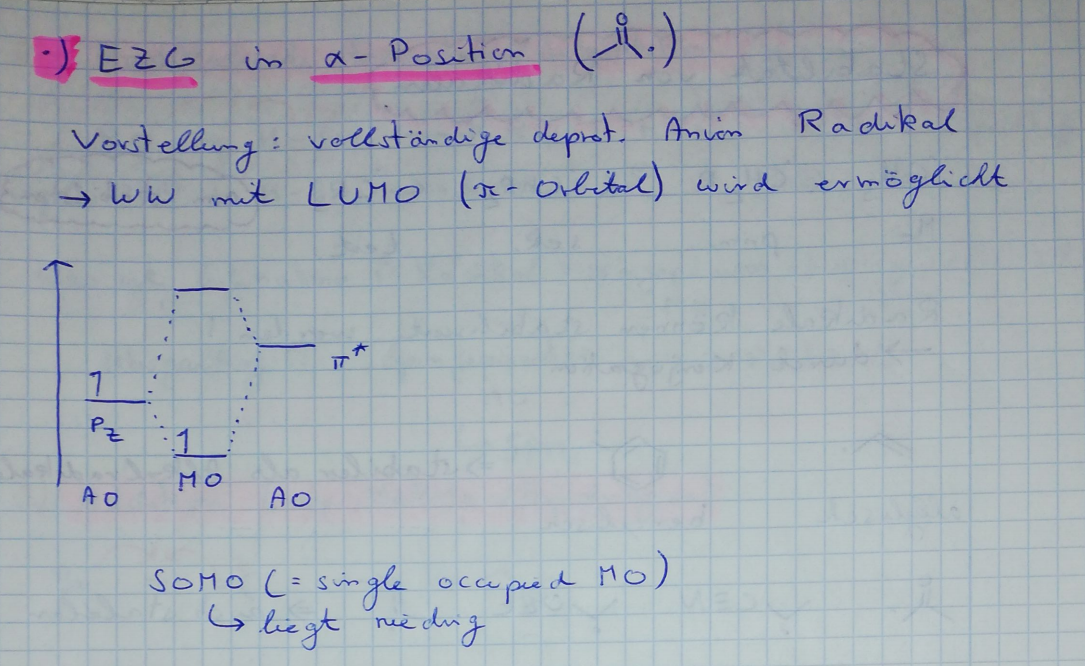 •) EZG in α-Position (O .)
Vorstellung: vollständige deprot. Anion Radikal
→ WW mit LUMO (π-Orbital) wird ermöglicht
1
π*
Pz
1
MO
AO
AO
SOMO (= single occupied MO)
↳ liegt niedrig